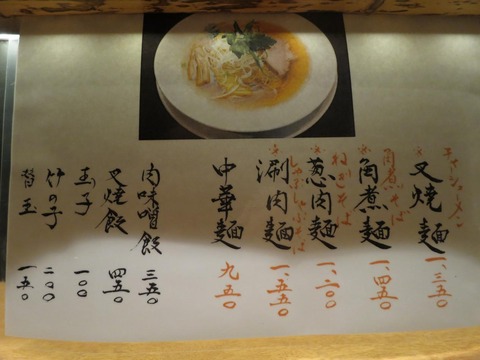 チャーシューメン
叉焼麺 一、三五〇
角煮そば
角煮麺 一、四五〇
ねぎそば
葱肉麺 一、二〇〇
しゃぶしゃぶそば
涮肉麺 一、五五〇
中華麺 九五〇
肉味噌飯 三五〇
叉焼飯 四五〇
玉子 一〇〇
竹の子 二〇〇
替玉 一五〇